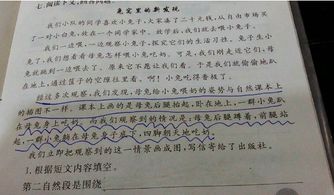 七、阅读下文,回答问题
兔窝里的新发现
我们小队的同学喜欢小兔子,大家凑了二十元钱,从自由市场买
了一对小白兔,放在一个同学家中。放学后,我们就去喂小兔子。
我们一边喂,一边观察小兔子,探究它们的生活习性。兔子生小
兔了,我们想看看母兔怎样喂小兔吃奶。可是,我们刚走近它们,母
兔就跑到一边去了。原来它不愿让我们看。于是我们就偷偷地趴
在地上,通过筐子的空隙往里看。啊!小兔吃得香极了。
经过多次观察,我们发现,母兔给小兔喂奶的姿势与自然课本上
的插图不一样。课本上画的是母兔后腿抬起,卧在地上,一群小兔趴
在母兔身上吃奶。而我们观察到的情况是:母兔后腿蹲着,前腿站
起,一群小兔躺在母兔身子底下,四脚朝天地吃奶。
我们立即把观察到的这一情景画成图,写信寄给了出版社。
1.根据短文内容填空。
第二自然段是围绕